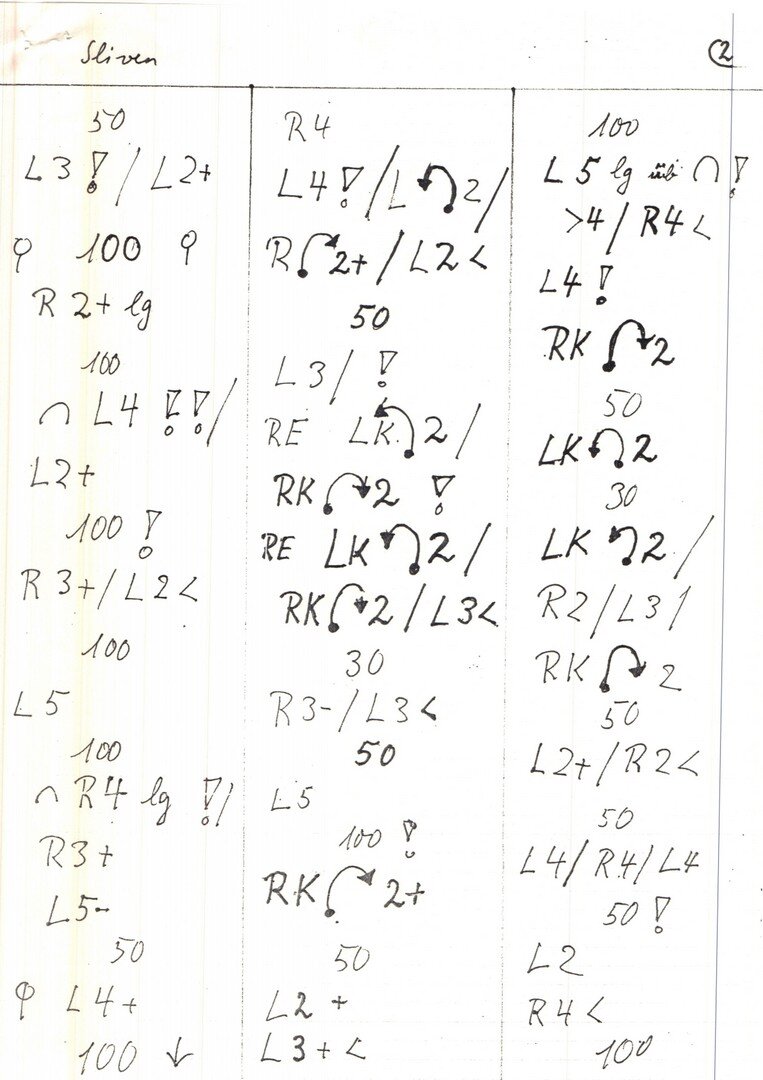 Sliven
2
50
L3 ! / L2+
100
R 2+ lg
100
∩ L4 !! /
L2+
100 !
R 3+ / L2 <
100
L5
100
∩ R4 lg ! /
R3+
L5-
50
L4+
100 ↓
R4
L4 ! / L ↶ 2 /
R ↷ 2+ / L2 <
50
L3 / !
RE LK ↶ 2 /
RK ↷ 2 !
RE LK ↶ 2 /
RK ↷ 2 / L3 <
30
R3- / L3 <
50
L5
100 !
RK ↷ 2+
50
L2 +
L3+ <
100
L5 lg üb ∩ !
>4 / R4 <
L4 !
RK ↷ 2
50
LK ↶ 2
30
LK ↶ 2 /
R2 / L3 /
RK ↷ 2
50
L2+ / R2 <
50
L4 / R4 / L4
50 !
L2
R4 <
100